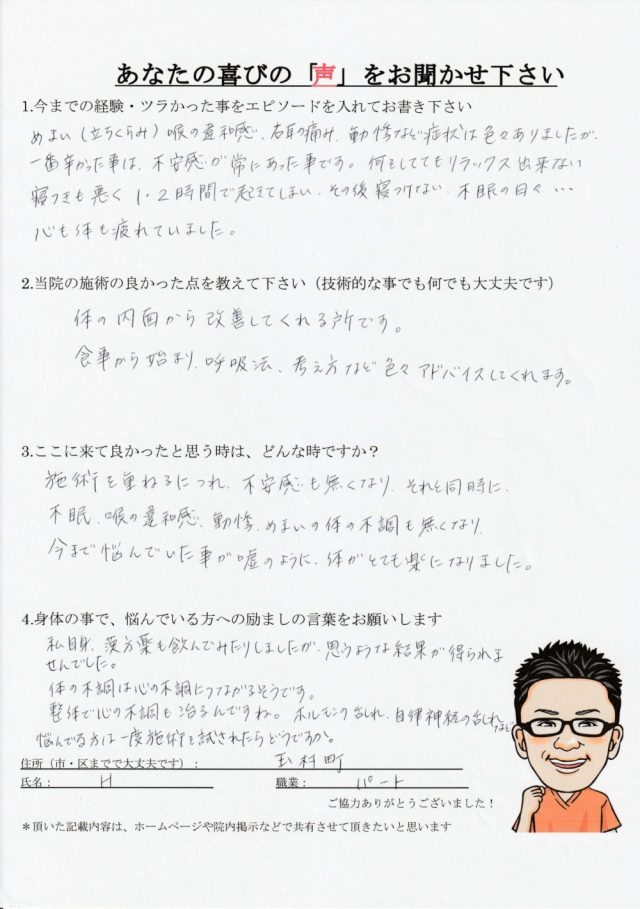 あなたの喜びの「声」をお聞かせ下さい
1.今までの経験・ツラかった事をエピソードを入れてお書き下さい
めまい(立ちくらみ)喉の違和感、右耳の痛み、動悸など症状は色々ありましたが、
一番辛かった事は、不安感が常にあった事です。何をしてもリラックス出来ない
寝つきも悪く 1・2時間で起きてしまい、その後寝つけない、不眠の日々…
心も体も疲れていました。
2.当院の施術の良かった点を教えて下さい(技術的な事でも何でも大丈夫です)
体の内面から改善してくれる所です。
食事から始まり、呼吸法、考え方など色々アドバイスしてくれます。
3.ここに来て良かったと思う時は、どんな時ですか?
施術を重ねるにつれ、不安感も無くなり、それと同時に、
不眠、喉の違和感、動悸、めまいの体の不調も無くなり、
今まで悩んでいた事が嘘のように、体がとても楽になりました。
4.身体の事で、悩んでいる方への励ましの言葉をお願いします
私自身、漢方薬も飲んでみたりしましたが、思うような結果が得られま
せんでした。
体の不調は心の不調につながるそうです。
整体で心の不調も治るんですね。ホルモンの乱れ、自律神経の乱れなど
悩んでる方は一度施術を試されたらどうですか。
住所(市・区までで大丈夫です): 玉村町
氏名: H 職業: パート
ご協力ありがとうございました!
*頂いた記載内容は、ホームページや院内掲示などで共有させて頂きたいと思います